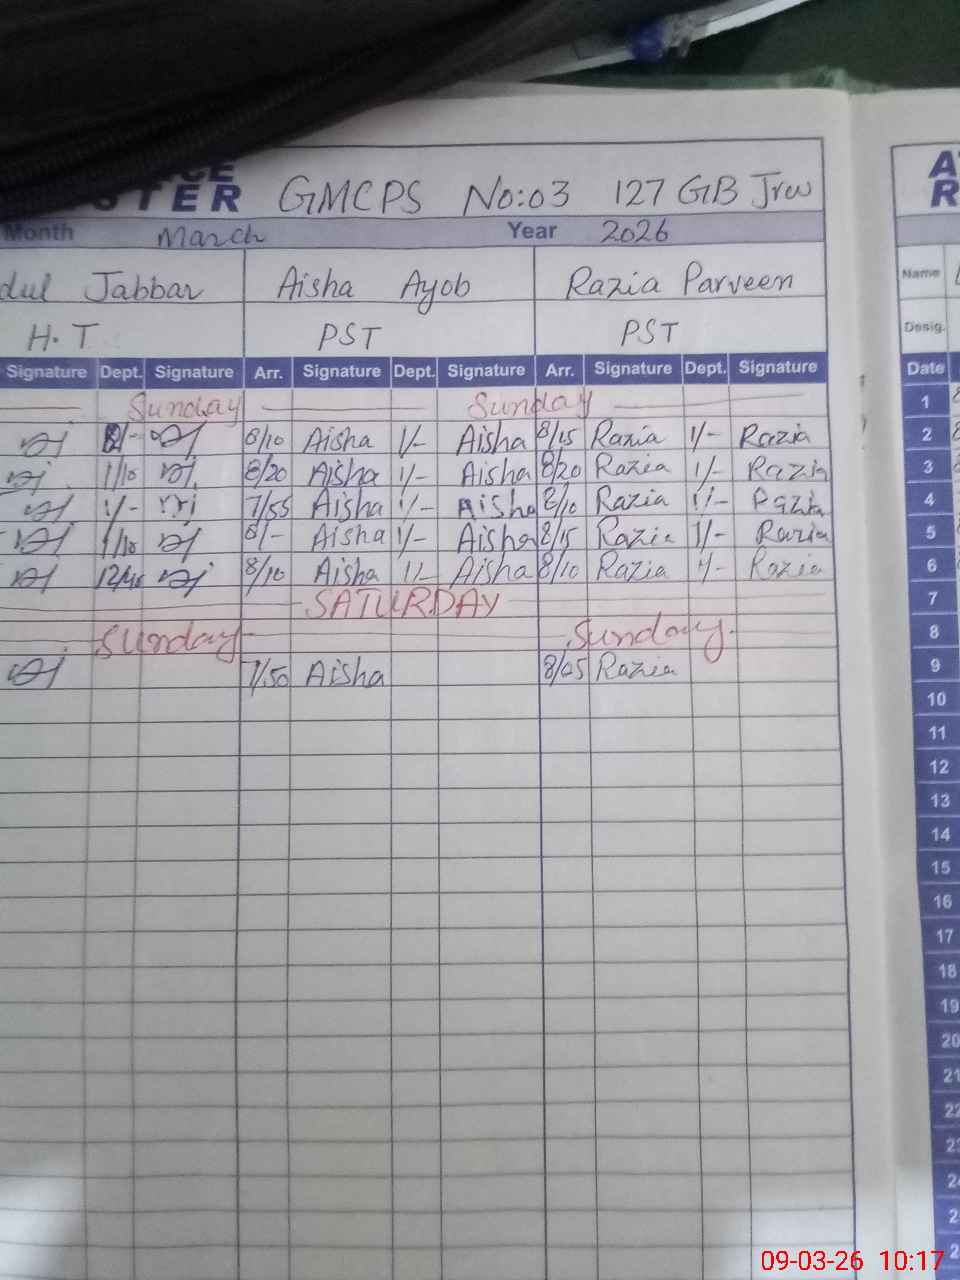 CE
STER GMCPS No:03 127 GB Jrw
Month March Year 2026
dul Jabbar Aisha Ayob Razia Parveen
H.T PST PST
Signature Dept. Signature Arr. Signature Dept. Signature Arr. Signature Dept. Signature
Sunday Sunday
8/10 Aisha 1/- Aisha 8/15 Razia 1/- Razia
1/10 8/20 Aisha 1/- Aisha 8/20 Razia 1/- Razia
1/- 7/55 Aisha 1/- Aisha 8/10 Razia 1/- Razia
1/10 8/- Aisha 1/- Aisha 8/15 Razia 1/- Razia
8/10 Aisha 1/- Aisha 8/10 Razia 1/- Razia
SATURDAY
Sunday Sunday.
7/50 Aisha 8/05 Razia
A
R
Name
Desig.
Date
1
2
3
4
5
6
7
8
9
10
11
12
13
14
15
16
17
18
19
20
21
22
09-03-26 10:17